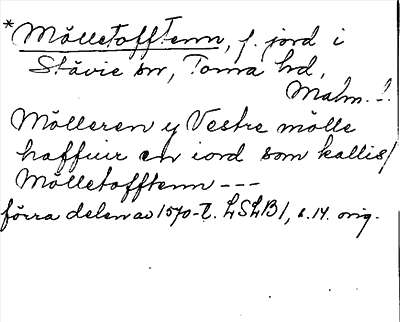 *Mölletofftenn, f. jord i
Stävie sn, Torna hd,
Malm. l.
Mölleren y Vestre mölle
haffuer en iord som kallis/
Mölletofftenn ---
förra delen av 1570-t. LSLB1, s. 14. orig.